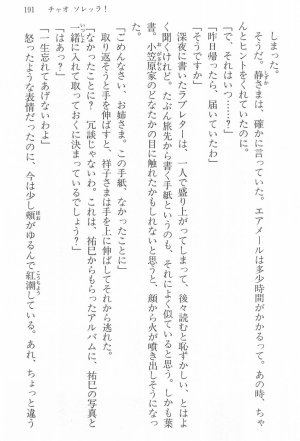 191　チャオ ソレッラ！
しまった。
そうだ。静さまは、確かに言っていた。エアメールは多少時間がかかるって。あの時、ちゃ
んとヒントをくれていたのに。
「で、それはいつ……？」
「昨日帰ったら、届いていたわ」
「そうですか」
深夜に書いたラブレターは、一人で盛り上がってしまって、後々読むと恥ずかしい、とはよ
く聞くけれど、たぶん旅先から書く手紙というのも、それによく似ていると思う。しかも葉
書。小笠原家のどなたかの目に触れたかもしれないと思うと、顔から火が噴き出しそうになっ
た。
「ごめんなさい、お姉さま。この手紙、なかったことに」
取り返そうと手を伸ばすと、祥子さまは手紙を持った手を伸ばしてそれから逃れた。
「なかったことに？　冗談じゃないわ。これは、祐巳からもらったアルバムに、祐巳の写真と
一緒に入れて取っておくに決まっているでしょう？」
「はあっ？」
「一生忘れてあげないわよ」
怒ったような表情だったのに、今は少し頬がゆるんで紅潮している。あれ、ちょっと違う